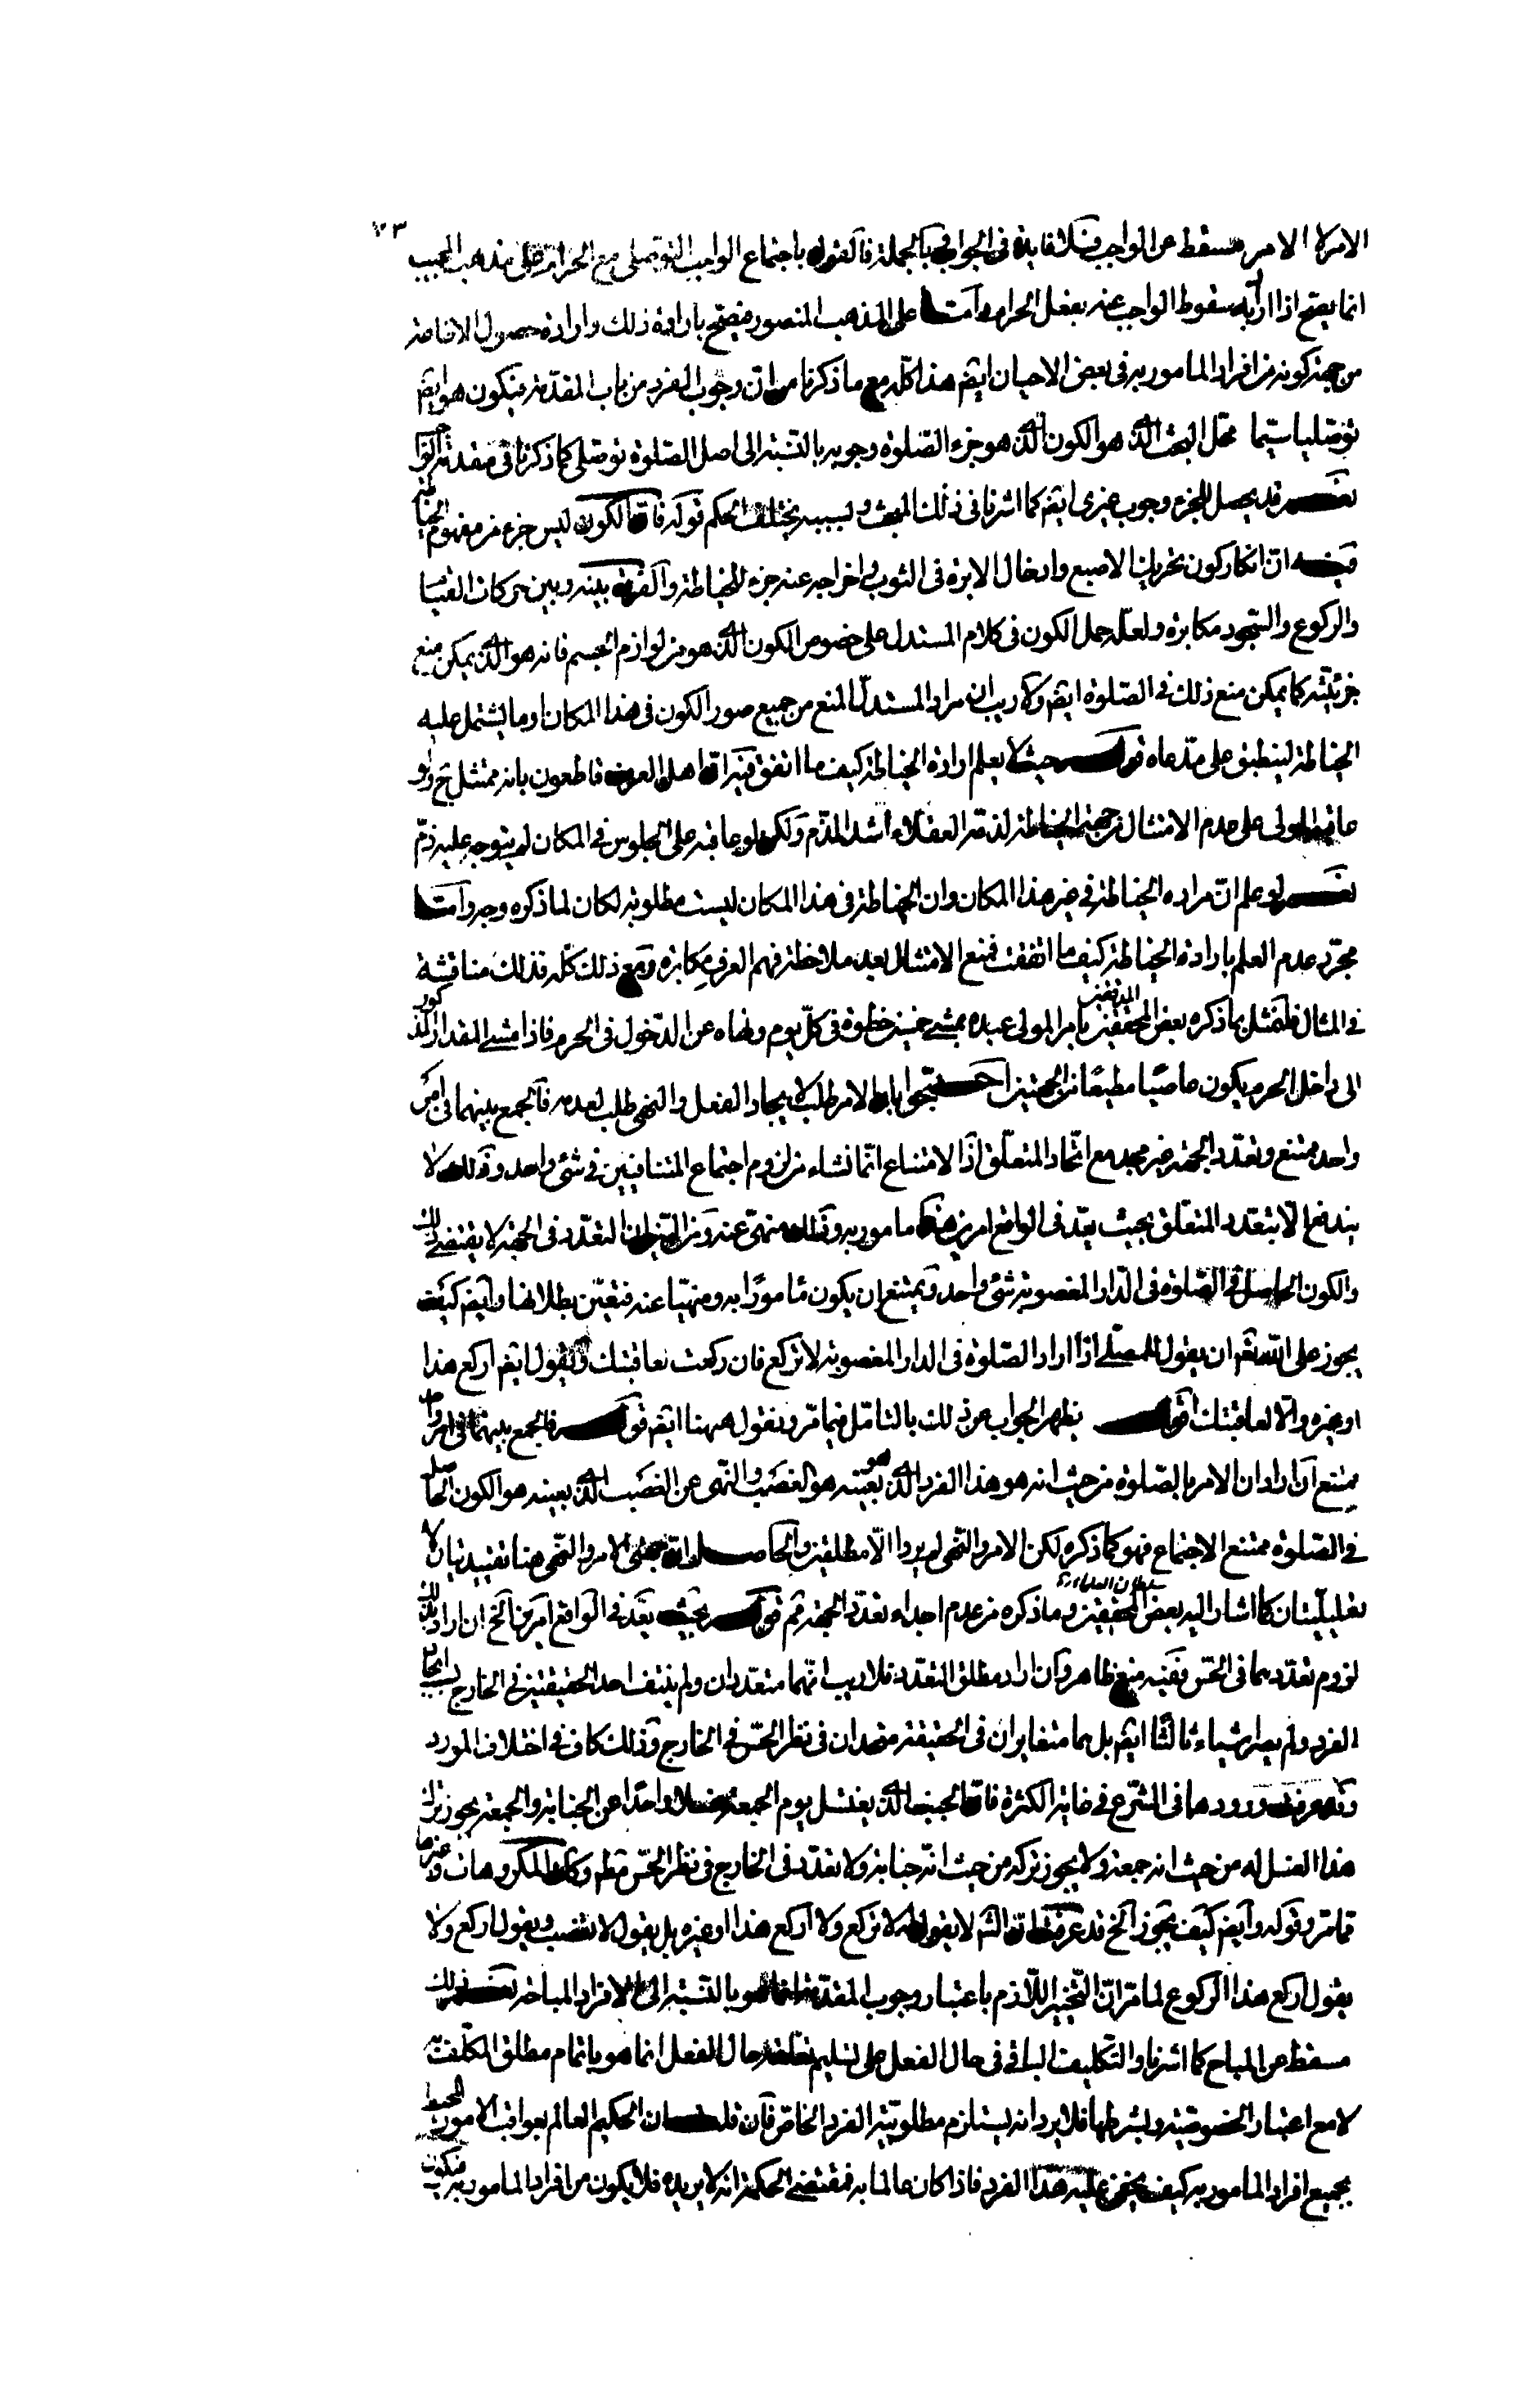 ٧٣
الامر لا الامر مسقط عن الواجب فلا فايدة فى الجواب وبالجملة فالقول باجتماع الواجب التوصلى مع الحرام على مذهب المجيب
انما يصح اذا اريد سقوط الواجب عنه بفعل الحرام واما على المذهب المنصور فيصح بارادة ذلك وارادة حصول الافاضة
من جهة كونه من افراد المامور به فى بعض الاحيان ايضم هذا كله مع ما ذكرنا من ان وجوب الفرد من باب المقدمة فيكون هو ايضم
توصليا سيما محل البحث الذى هو الكون الذى هو جزء الصلوة وجوبه بالنسبة الى اصل الصلوة توصلى كما ذكرنا فى مقدمة الواجب
نعم قد يحصل للجزء وجوب غيرى ايضم كما اشرنا فى ذلك المبحث وبسببه يختلف الحكم قوله فان الكون ليس جزء من مفهوم الخياطة
فيه ان انكار كون تحريك الاصبع وادخال الابرة فى الثوب واخراجه عنه جزء للخياطة والفرق بينه وبين حركات القيام
والركوع والسجود مكابرة ولعله حمل الكون فى كلام المستدل على خصوص الكون الذى هو من لوازم الجسم فانه هو الذى يمكن منع
جزئيته كما يمكن منع ذلك فى الصلوة ايضم ولا ريب ان مراد المستدل المنع من جميع صور الكون فى هذا المكان او ما يشتمل عليه
الخياطة لينطبق على مدعاه قوله حيث لا يعلم ارادة الخياطة كيف ما اتفق فيه ان اهل العرف قاطعون بانه ممتثل ح ولو
عاقبه المولى على عدم الامتثال من جهة الخياطة لذمه العقلاء اشد الذم ولكن لو عاقبه على الجلوس فى المكان لم يتوجه عليه ذم
نعم لو علم ان مراده الخياطة فى غير هذا المكان وان الخياطة فى هذا المكان ليست مطلوبة لكان لما ذكره وجه واما
مجرد عدم العلم بارادة الخياطة كيف ما اتفقت فمنع الامتثال بعد ملاحظة فهم العرف مكابرة ومع ذلك كله فذلك مناقشة
فى المثال فلنمثل بما ذكره بعض المحققين المدققين بامر المولى عبده بمشى خمسين خطوة فى كل يوم ونهاه عن الدخول فى الحرم فاذا مشى المقدار المذكور
الى داخل الحرم يكون عاصيا مطيعا من الجهتين احتجوا بان الامر طلب لايجاد الفعل والنهى طلب لعدمه فالجمع بينهما فى امر
واحد ممتنع وتعدد الجهة غير مجد مع اتحاد المتعلق اذ الامتناع انما نشاء من لزوم اجتماع المتنافيين فى شئ واحد وذلك لا
يندفع الا بتعدد المتعلق بحيث يعد فى الواقع امرين هذا مامور به وذلك منهى عنه ومن البين ان التعدد فى الجهة لا يقتضى ذلك
والكون الحاصل فى الصلوة فى الدار المغصوبة شئ واحد ويمتنع ان يكون مامورا به ومنهيا عنه فتعين بطلانها وايضم كيف
يجوز على الله تعم ان يقول للمصلى اذا اراد الصلوة فى الدار المغصوبة لا تركع فان ركعت لعاقبتك ويقول ايضم اركع هذا
او غيره والا لعاقبتك اقول يظهر الجواب عن ذلك بالتامل فيما مر ونقول ههنا ايضم قوله فالجمع بينهما فى امر واحد
ممتنع ان اراد ان الامر بالصلوة من حيث انه هو هذا الفرد الذى هو بعينه هو الغصب والنهى عن الغصب الذى بعينه هو الكون الحاصل
فى الصلوة ممتنع الاجتماع فهو كما ذكره لكن الامر والنهى لم يردا الا مطلقين والحاصل ان جهتى الامر والنهى هنا تقييديتان لا
تعليليتان كما اشار اليه بعض المحققين سلطان العلماء ره وما ذكره من عدم اجداء تعدد الجهة قوله بحيث يعد فى الواقع امرين الخ ان اراد بذلك
لزوم تعددهما فى الحس ففيه منع ظاهر وان اراد مطلق التعدد فلا ريب انهما متعددان ولم ينتف احد الحقيقتين فى الخارج بسبب اتحاد
الفرد ولم يصر شيئا ثالثا ايضم بل هما متغايران فى الحقيقة متحدان فى نظر الحس فى الخارج وذلك كاف فى اختلاف المورد
وقد عرفت ورودهما فى الشرع فى غاية الكثرة فان الجنب الذى يغتسل يوم الجمعة غسلا واحدا عن الجنابة والجمعة يجوز ترك
هذا الغسل له من حيث انه جمعة ولا يجوز تركه من حيث انه جنابة ولا تعدد فى الخارج فى نظر الحس قطم وكذا المكروهات وغيرها
مما مر وقوله وايضم كيف يجوز الخ قد عرفت ان الله تم لا يقول له لا تركع ولا اركع هذا او غيره بل يقول لا تغصب ويقول اركع ولا
يقول اركع هذا الركوع لما مر ان التخيير اللازم باعتبار وجوب المقدمة انما هو بالنسبة الى الافراد المباحة نعم ذلك
مسقط عن المباح كما اشرنا والتكليف الباقى فى حال الفعل على تسليم تعلقه حال الفعل انما هو باتمام مطلق المكلف به
لا مع اعتبار الخصوصية وبشرطها فلا يرد انه يستلزم مطلوبية الفرد الخاص فان قلت ان الحكيم العالم بعواقب الامور المحيط
بجميع افراد المامور به كيف يخفى عليه هذا الفرد فاذا كان عالما به فمقتضى الحكمة انه لا يريده فلا يكون من افراد المامور به فيكون